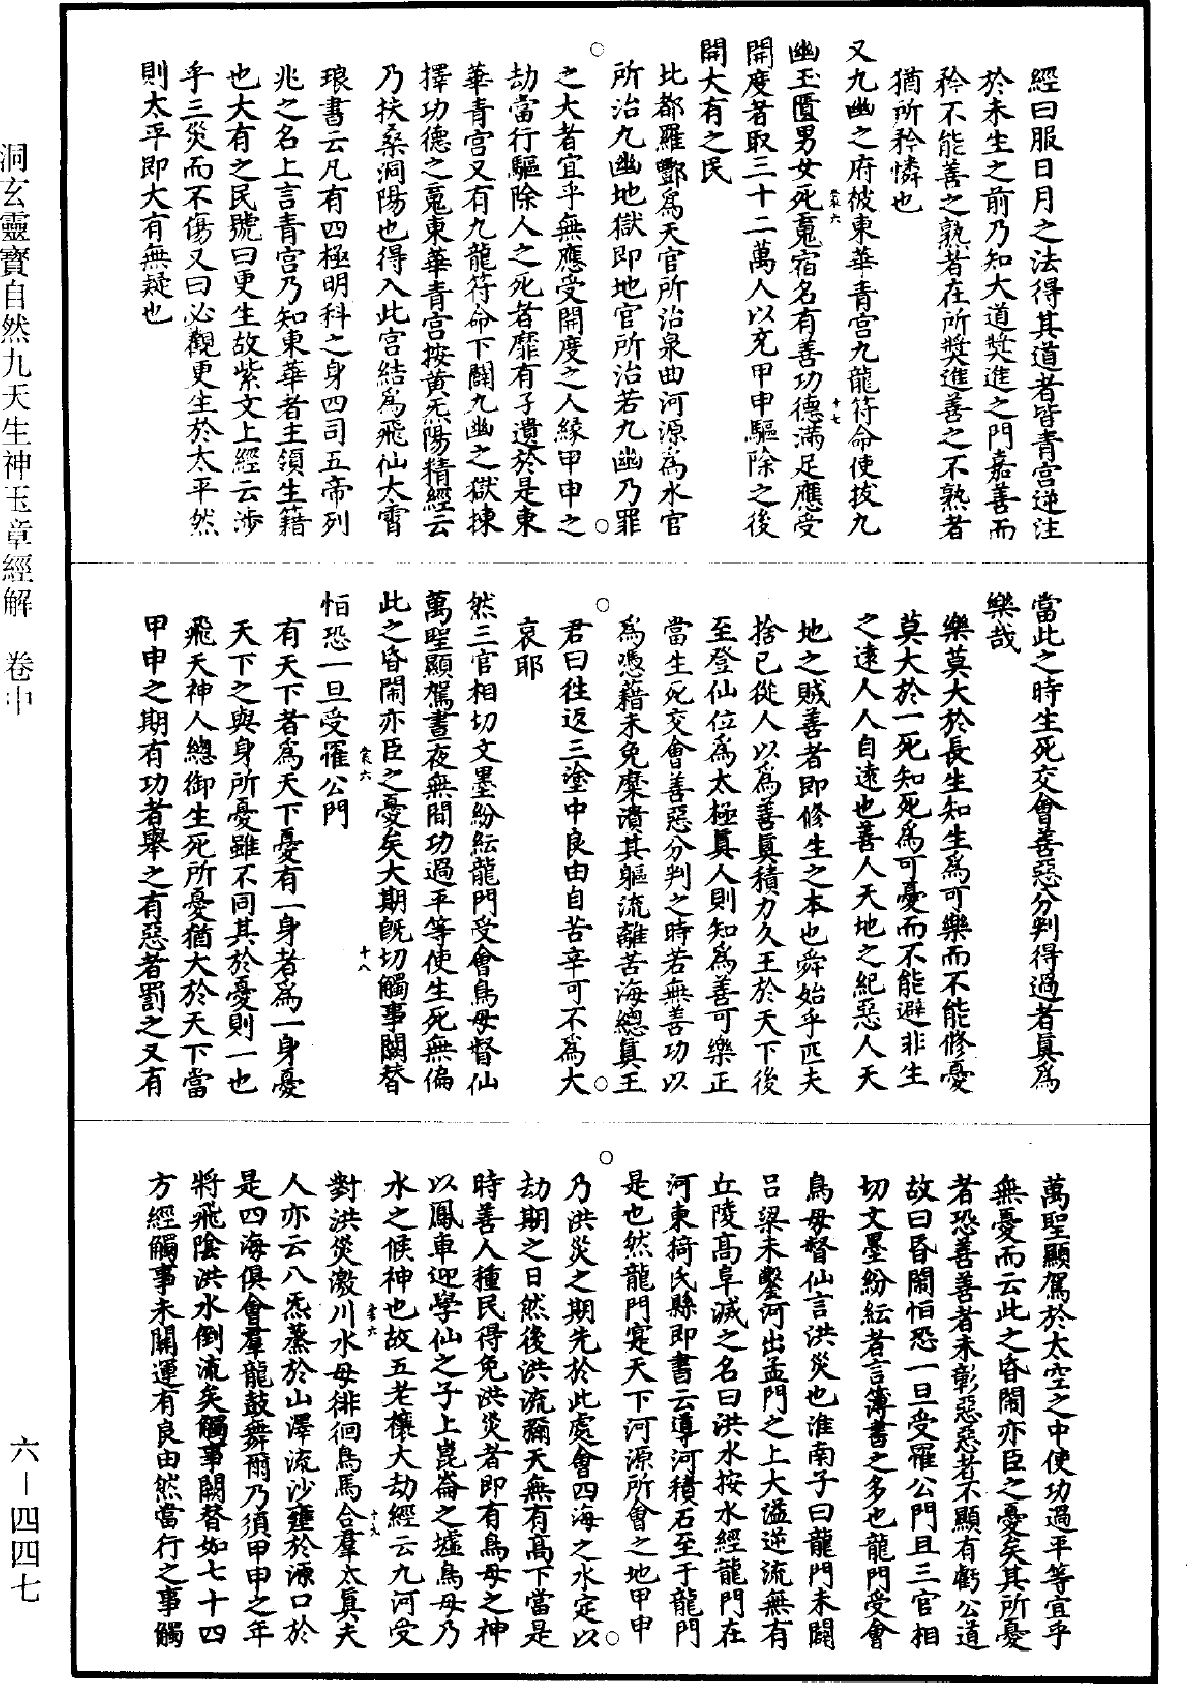 經曰服日月之法得其道者皆青宫逆注
於未生之前乃知大道奬進之門嘉善而
矜不能善之熟者在所奬進善之不熟者
猶所矜憐也
又九幽之府被東華青宫九龍符命使拔九
幽玉匱男女死䰟宿名有善功德滿足應受
開度者取三十二萬人以充甲申驅除之後
開大有之民
比都羅酆爲天官所治泉曲河源爲水官
所治九幽地獄即地官所治若九幽乃罪
之大者宜乎無應受開度之人緣甲申之
劫當行驅除人之死者靡有孑遺於是東
華青宫又有九龍符命下闢九幽之獄揀
擇功德之䰟東華青宫按黄炁陽精經云
乃扶桑洞陽也得入此宫結爲飛仙太霄
琅書云凡有四極明科之身四司五帝列
兆之名上言青宫乃知東華者主領生籍
也大有之民號曰更生故紫文上經云涉
乎三災而不傷又曰必觀更生於太平然
則太平即大有無疑也
當此之時生死交會善惡分判得過者眞爲
樂哉
樂莫大於長生知生爲可樂而不能修憂
莫大於一死知死爲可憂而不能避非生
之遠人人自遠也善人天地之紀惡人天
地之賊善者即修生之本也舜始乎匹夫
捨已從人以爲善眞積力久王於天下後
至登仙位爲太極眞人則知爲善可樂正
當生死交會善惡分判之時若無善功以
爲憑藉未免糜潰其軀流離苦海總眞王
君曰往返三塗中良由自苦辛可不爲大
哀耶
然三官相切文墨紛紜龍門受會鳥母督仙
萬聖顯駕晝夜無間功過平等使生死無偏
此之昏閙亦臣之憂矣大期旣切觸事闕替
怕恐一旦受罹公門
有天下者爲天下憂有一身者爲一身憂
天下之與身所憂雖不同其於憂則一也
飛天神人總御生死所憂猶大於天下當
甲申之期有功者舉之有惡者罰之又有
萬聖顯駕於太空之中使功過平等宜乎
無憂而云此之昏閙亦臣之憂矣其所憂
者恐善善者未彰惡惡者不顯有虧公道
故曰昏閙怕恐一旦受罹公門且三官相
切文墨紛紜者言簿書之多也龍門受會
鳥母督仙言洪災也淮南子曰龍門未闢
吕梁未鑿河出孟門之上大溢逆流無有
丘陵高阜滅之名曰洪水按水經龍門在
河東猗氏縣即書云導河積石至于龍門
是也然龍門寔天下河源所會之地甲申
乃洪災之期先於此處會四海之水定以
劫期之日然後洪流彌天無有高下當是
時善人種民得免洪災者即有鳥母之神
以鳳車迎學仙之子上崑崙之墟鳥母乃
水之候神也故五老禳大劫經云九河受
對洪災激川水母徘徊鳥馬合羣太眞夫
人亦云八炁蒸於山澤流沙壅於源口於
是四海俱會羣龍鼓舞爾乃須甲申之年
將飛陰洪水倒流矣觸事闕替如七十四
方經觸事未開運有良由然當行之事觸
洞玄靈寶自然九天生神玉章經解 卷中
六—四四七